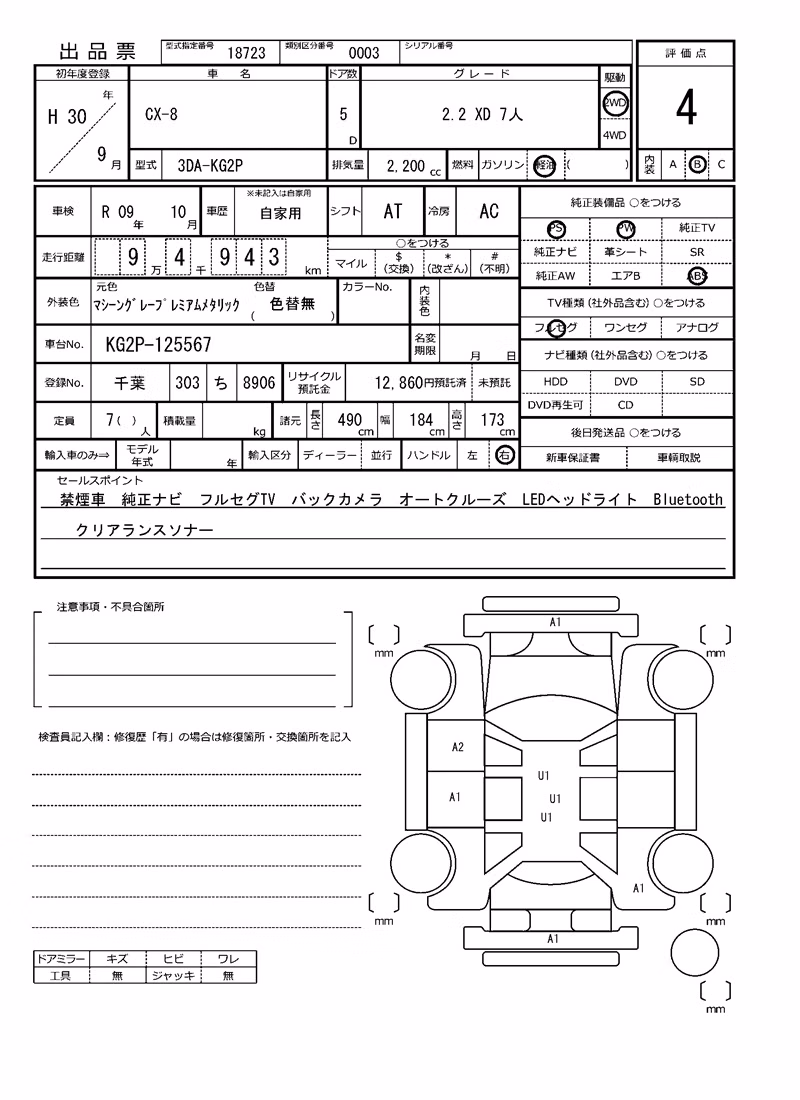 出品票 型式指定番号 18723 類別区分番号 0003 シリアル番号
評価点
4
内装 A B C
初年度登録 車名 ドア数 グレード 駆動
H 30 年 9 月
CX-8 5 D 2.2 XD 7人 2WD
4WD
型式 3DA-KG2P 排気量 2,200 cc 燃料 ガソリン 軽油 ( )
車検 R 09 年 10 月 車歴 ※未記入は自家用 自家用 シフト AT 冷房 AC
走行距離 9 万 4 千 9 4 3 km
○をつける
マイル $(交換) *(改ざん) #(不明)
外装色 元色 マシーングレープレミアムメタリック 色替 ( 色替無 ) カラーNo. 内装色
車台No. KG2P-125567 名変期限 月 日
登録No. 千葉 303 ち 8906 リサイクル預託金 12,860円預託済 未預託
定員 7( )人 積載量 kg 諸元 長さ 490cm 幅 184cm 高さ 173cm
輸入車のみ⇒ モデル年式 年 輸入区分 ディーラー 並行 ハンドル 左 右
純正装備品 ○をつける
PS PW 純正TV
純正ナビ 革シート SR
純正AW エアB ABS
TV種類(社外品含む)○をつける
フルセグ ワンセグ アナログ
ナビ種類(社外品含む)○をつける
HDD DVD SD
DVD再生可 CD
後日発送品 ○をつける
新車保証書 車輌取説
セールスポイント
禁煙車 純正ナビ フルセグTV バックカメラ オートクルーズ LEDヘッドライト Bluetooth
クリアランスソナー
注意事項・不具合箇所
検査員記入欄:修復歴「有」の場合は修復箇所・交換箇所を記入
ドアミラー キズ ヒビ ワレ
工具 無 ジャッキ 無
A1
mm
mm
A2
U1
A1
U1
U1
A1
mm
mm
A1
mm